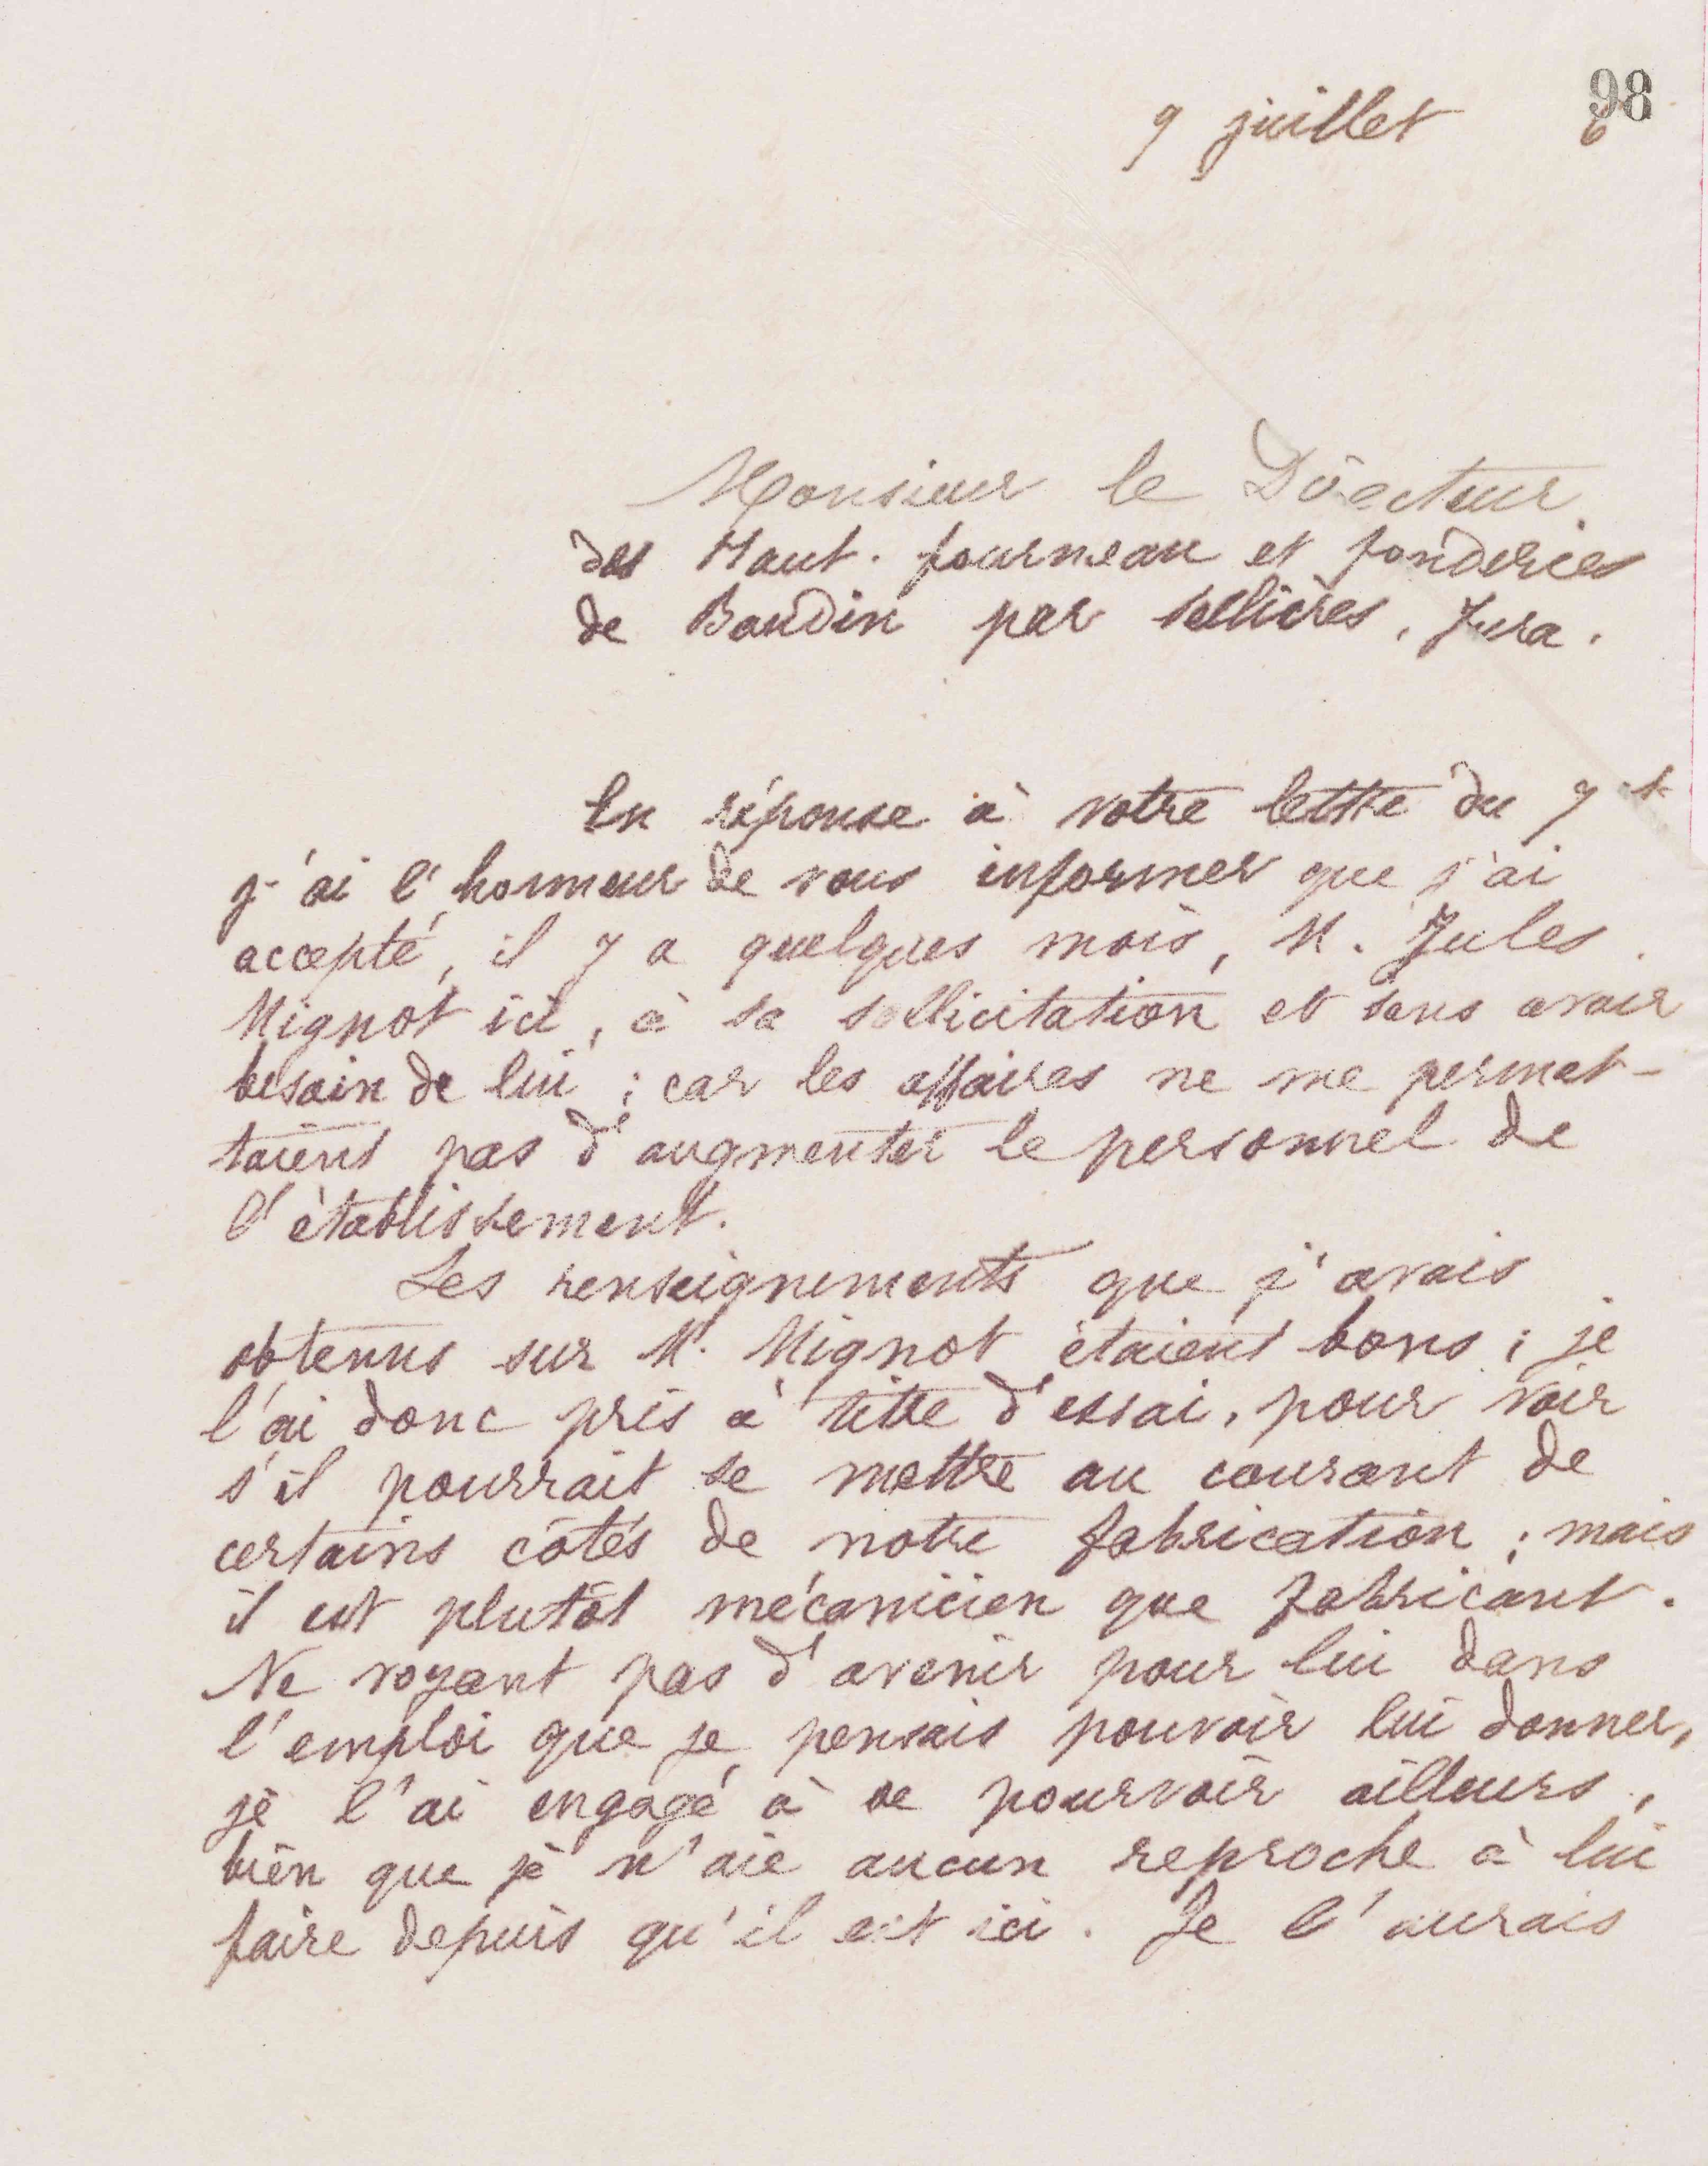 98
9 juillet 6
Monsieur le Directeur
des Haut. fourneau et fonderies
de Baudin par Sellières, Jura.
En réponse à votre lettre du 7 ct
j'ai l'honneur de vous informer que j'ai
accepté, il y a quelques mois, M. Jules
Mignot ici, à sa sollicitation et sans avoir
besoin de lui ; car les affaires ne me permet-
taient pas d'augmenter le personnel de
l'établissement.
Les renseignements que j'avais
obtenus sur M. Mignot étaient bons ; je
l'ai donc pris à titre d'essai, pour voir
s'il pourrait se mettre au courant de
certains côtés de notre fabrication ; mais
il est plutôt mécanicien que fabricant.
Ne voyant pas d'avenir pour lui dans
l'emploi que je pensais pouvoir lui donner,
je l'ai engagé à se pourvoir ailleurs,
bien que je n'aie aucun reproche à lui
faire depuis qu'il est ici. Je l'aurais